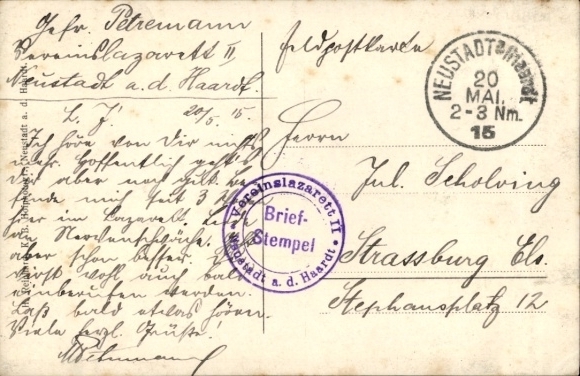 Gefr. Petremann
Vereinslazarett II
Neustadt a. d. Haardt.
L. J! 20/5. 15.
Ich höre von Dir nichts
mehr. Hoffentlich geht's
Dir aber noch gut. Be-
finde mich seit 3
hier im Lazarett.
an Nervenschwäche.
aber schon besser. Du
wirst wohl auch bald
einberufen werden.
Laß bald etwas hören.
Viele herzl. Grüße!
Feldpostkarte
NEUSTADT a/Haardt
20
MAI.
2-3 Nm.
15
Herrn
Jul. Scholving
Strassburg Els.
Stephansplatz 12
Vereinslazarett II
Brief-
Stempel
Neustadt a. d. Haardt.
Neustadt a. d. Haardt.